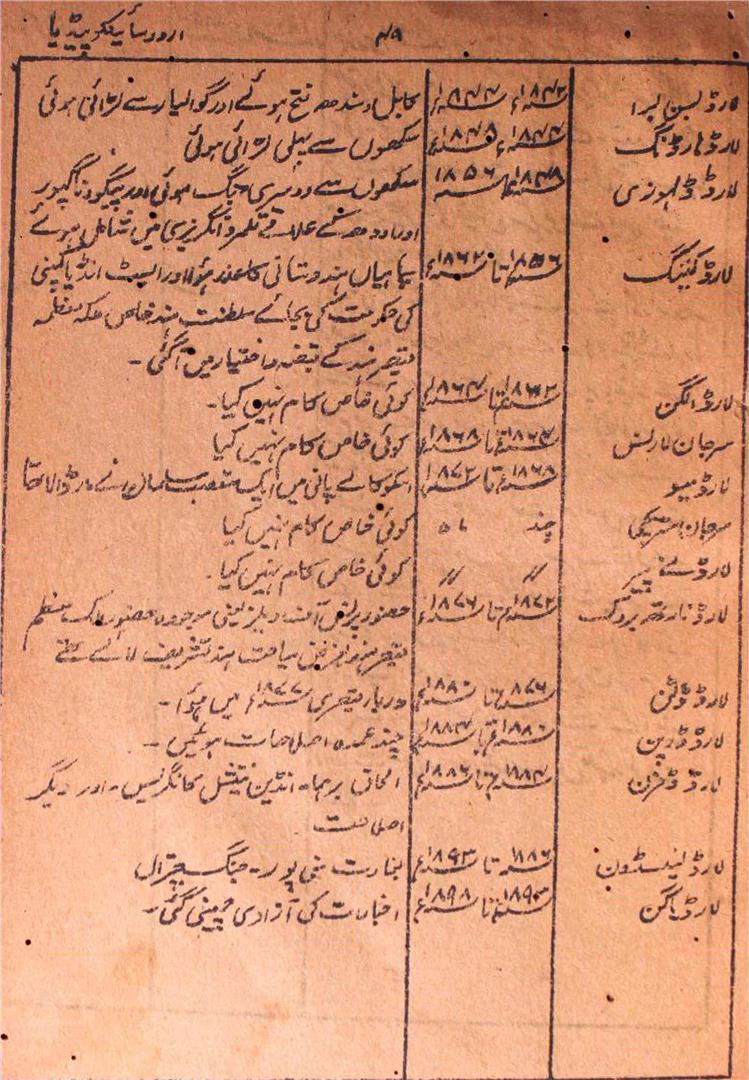 اردو سائیکلوپیڈیا ۴۹
لارڈ ایلن برا ۱۸۴۲ء ۱۸۴۴ء کابل و سندھ فتح ہوئے اور گوالیار سے لڑائی ہوئی
لارڈ ہارڈنگ ۱۸۴۴ء ۱۸۴۸ء سکھوں سے پہلی لڑائی ہوئی
لارڈ ڈلہوزی ۱۸۴۸ء ۱۸۵۶ء سکھوں سے دوسری جنگ ہوئی اور پیگو و ناگپور
اور اودھ کے علاقے قلمرو انگریزی میں شامل ہوئے
لارڈ کیننگ ۱۸۵۶ء تا ۱۸۶۲ء سپاہیان ہندوستانی کا غدر ہوا اور ایسٹ انڈیا کمپنی
کی حکومت کی بجائے سلطنت ہند خاص ملکہ معظمہ
قیصر ہند کے قبضہ و اختیار میں آگئی۔
لارڈ الگن ۱۸۶۲ء تا ۱۸۶۴ء کوئی خاص کام نہیں کیا۔
سرجان لارنس ۱۸۶۴ء تا ۱۸۶۸ء کوئی خاص کام نہیں کیا
لارڈ میو ۱۸۶۸ء تا ۱۸۷۲ء انکو کالے پانی میں ایک متعصب مسلمان نے مار ڈالا تھا
سرجان سٹریچی چند ماہ کوئی خاص کام نہیں کیا
لارڈ 〃 〃 کوئی خاص کام نہیں کیا۔
لارڈ نارتھ بروک ۱۸۷۲ء تا ۱۸۷۶ء حضور پرنس آف ویلز یعنی موجودہ حضور ملک معظم
قیصر ہند بغرض سیاحت ہند تشریف لائے تھے
لارڈ لٹن ۱۸۷۶ء تا ۱۸۸۰ء دربار قیصری ۱۸۷۷ء میں ہوا۔
لارڈ رپن ۱۸۸۰ء تا ۱۸۸۴ء چند عمدہ اصلاحات ہوئیں۔
لارڈ ڈفرن ۱۸۸۴ء تا ۱۸۸۶ء الحاق برہما۔ انڈین نیشنل کانگریس۔ اور دیگر
اصلاحات
لارڈ لینسڈون ۱۸۸۶ء تا ۱۸۹۳ء بغاوت منی پور۔ جنگ چترال
لارڈ الگن ۱۸۹۳ء تا ۱۸۹۸ء اخبارات کی آزادی چھینی گئی۔